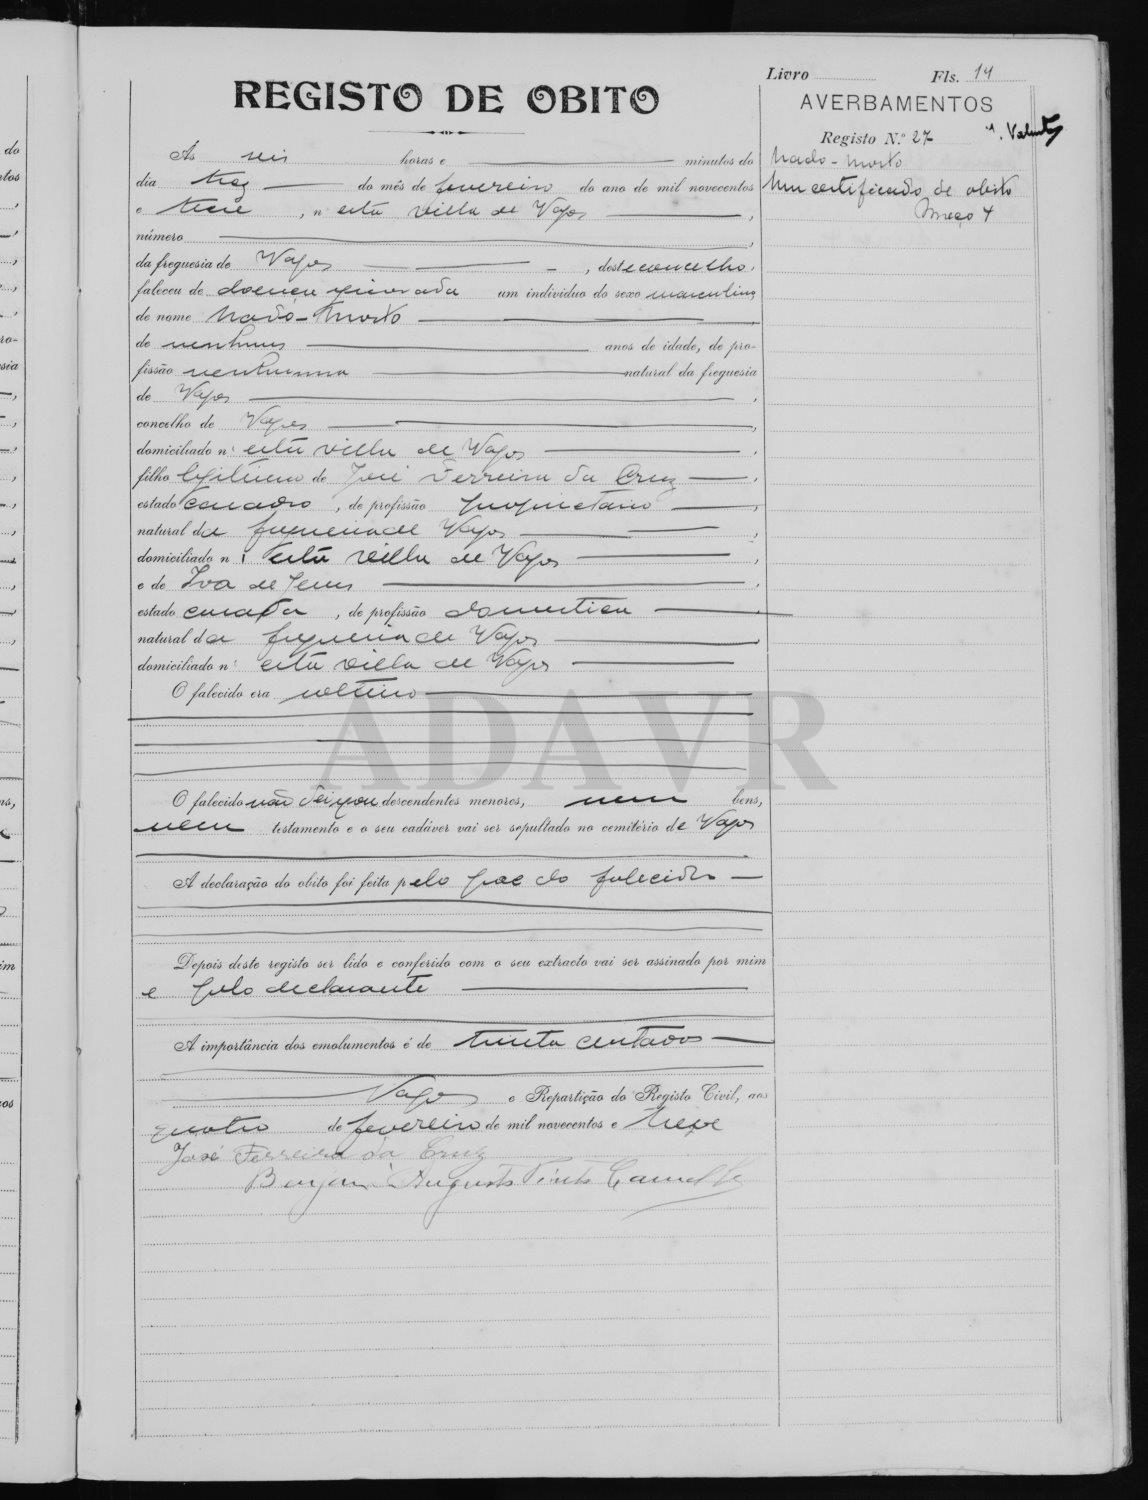 Livro Fls. 14
REGISTO DE OBITO
AVERBAMENTOS
Registo N.º 27
Às seis horas e minutos do
Nado-morto
dia trez do mês de fevereiro do ano de mil novecentos
Um certificado de obito
e treze, n esta villa de Vagos,
Maço 4
número,
da freguesia de Vagos, deste concelho,
faleceu de doença ignorada um individuo do sexo masculino
de nome Nado-Morto
de nenhuns anos de idade, de pro-
fissão nenhuma natural da freguesia
de Vagos,
concelho de Vagos,
domiciliado n esta villa de Vagos,
filho legitimo de José Ferreira da Cruz,
estado casado, de profissão proprietario,
natural da freguesia de Vagos,
domiciliado n esta villa de Vagos,
e de Iva de Jesus,
estado casada, de profissão domestica
natural da freguesia de Vagos,
domiciliado n esta villa de Vagos
O falecido era solteiro
ADAVR
O falecido não deixou descendentes menores, nem bens,
nem testamento e o seu cadáver vai ser sepultado no cemitério de Vagos
A declaração do obito foi feita pelo pae do falecido
Depois deste registo ser lido e conferido com o seu extracto vai ser assinado por mim
e pelo declarante
A importância dos emolumentos é de trinta centavos
Vagos e Repartição do Registo Civil, aos
quatro de fevereiro de mil novecentos e treze
José Ferreira da Cruz
Augusto Pinto